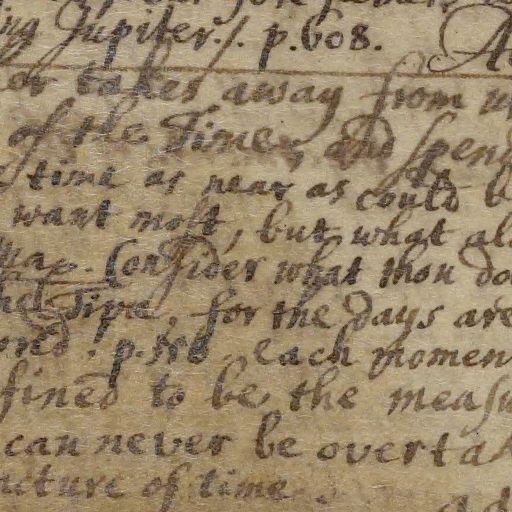 ng Jupiter./. p. 608.
or takes away from
of the Time, and spen
time as near as could b
want most, but what al
Consider what thou do
Time, for the days are
p. 578. each momen
fined to be the measu
can never be overtak
ncture of time.